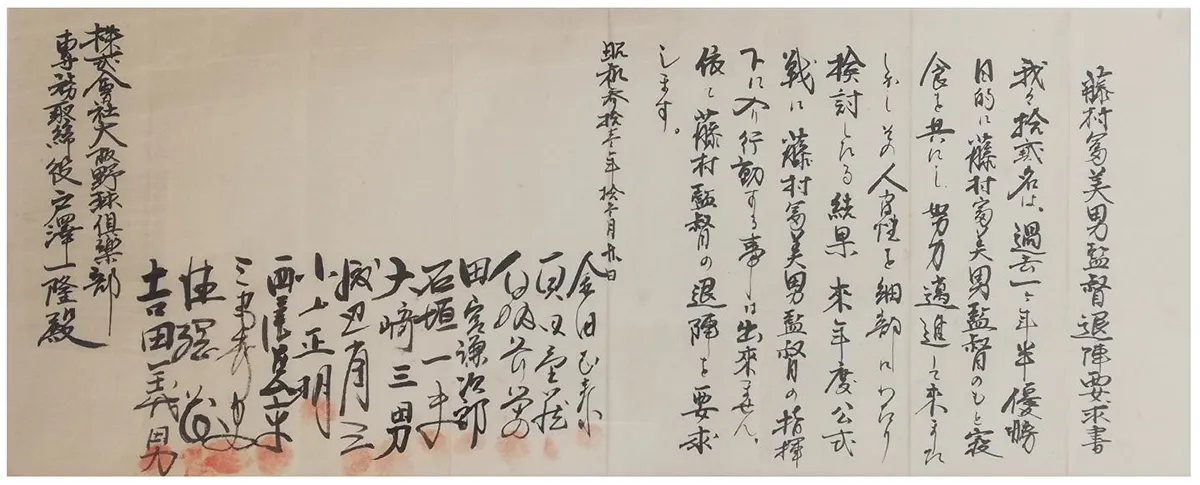 藤村冨美男監督退陣要求書
我々拾弐名は、過去一ヶ年半優勝
目的に藤村冨美男監督のもと寝
食を共にし努力邁進して来ました
しかしその人間性を細部にわたり
検討したる結果 来年度公式
戦に藤村冨美男監督の指揮
下に入り行動する事は出来ません。
依て藤村監督の退陣を要求
します。
昭和参拾壱年拾
金田正泰
真田重蔵
白坂長栄
田宮謙次郎
石垣一夫
大崎三男
渡辺省三
小山正明
西尾慈高
三船
吉田義男
株式会社大阪野球倶楽部
専務取締役戸澤一隆殿